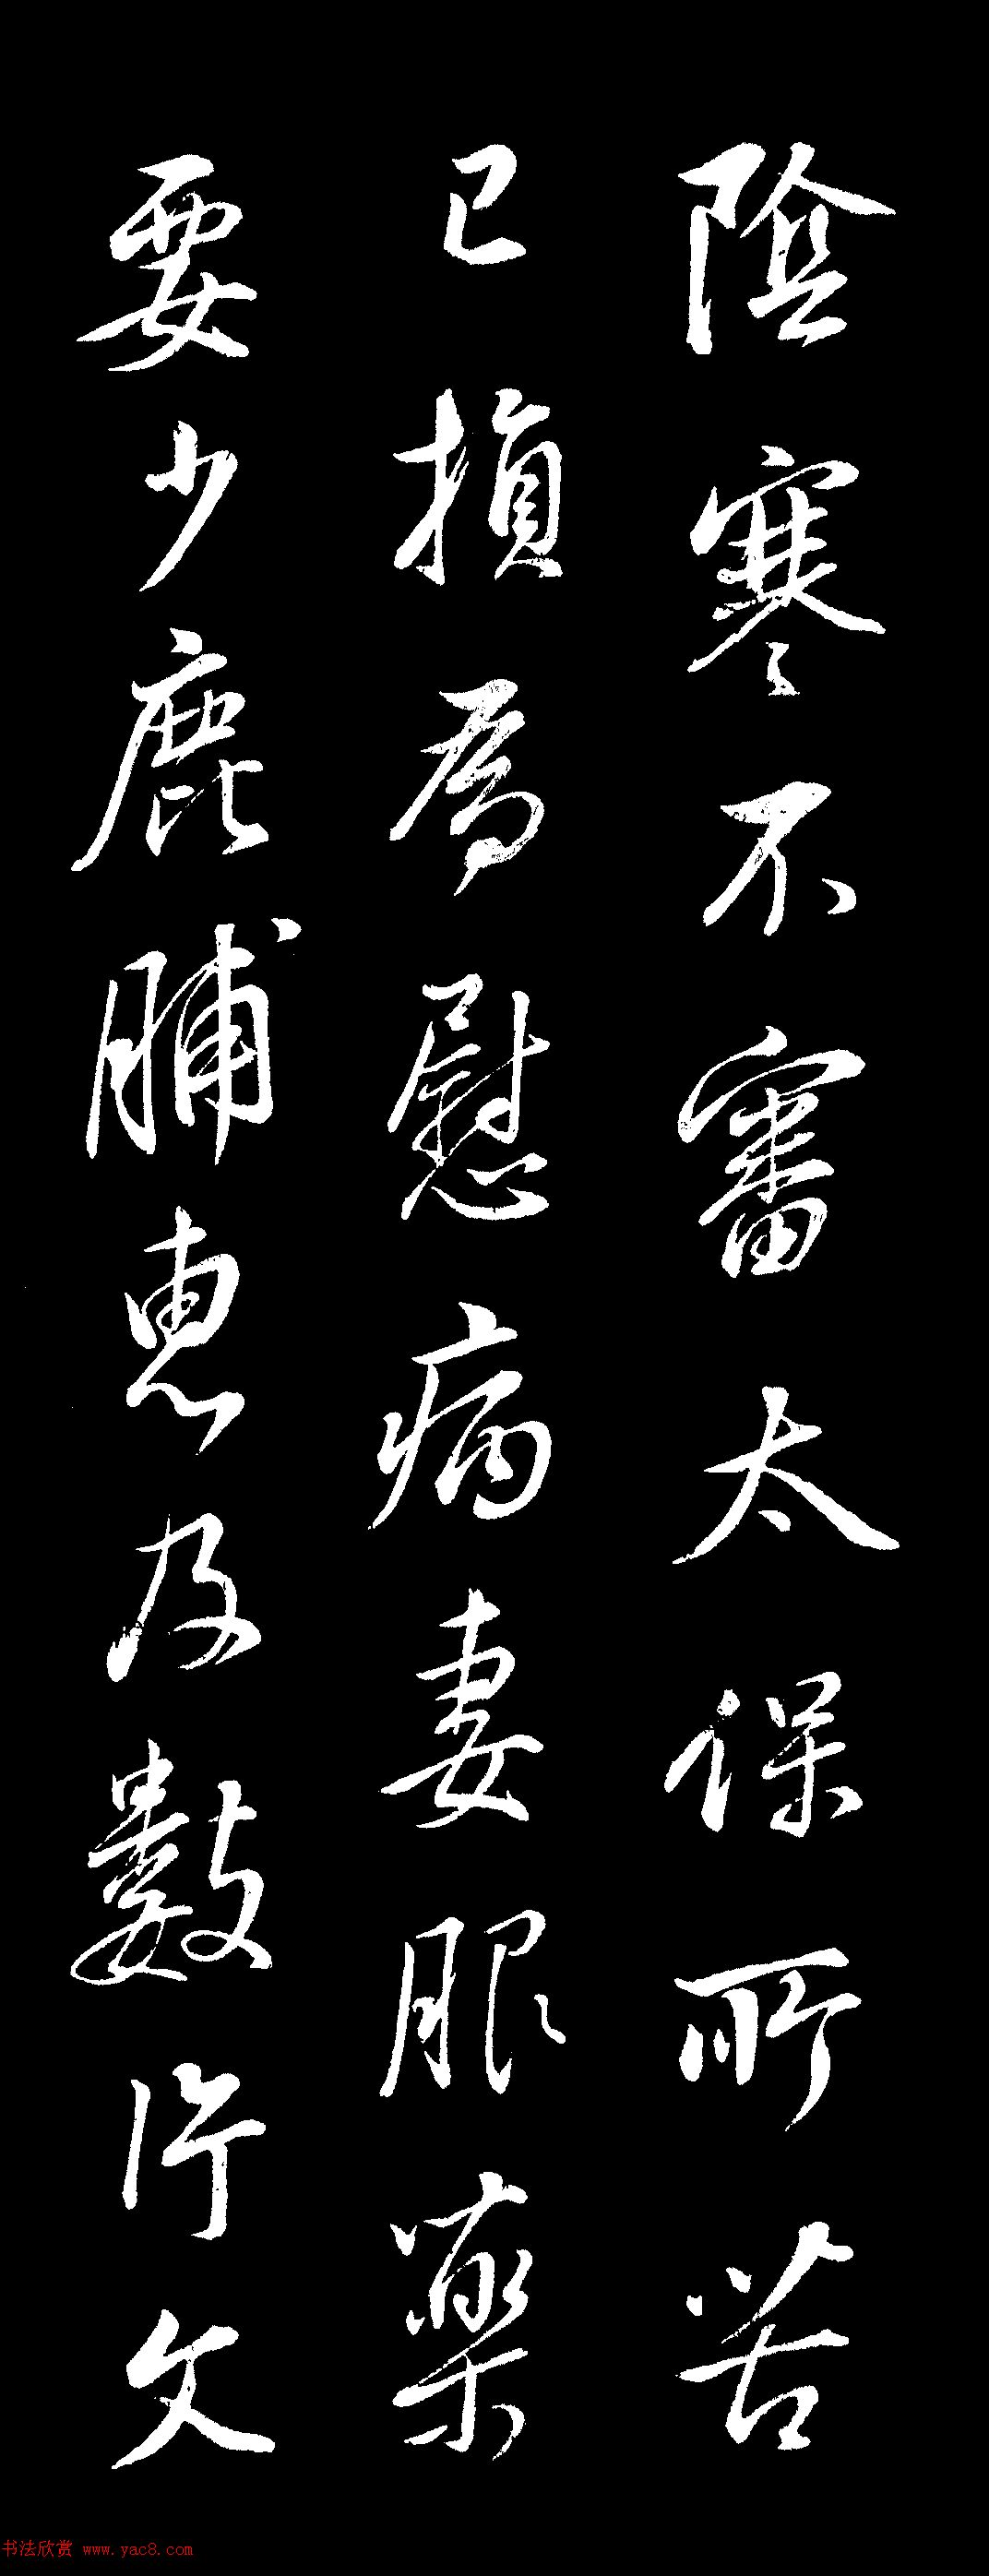 陰寒不審太保所苦
已損為慰病妻服藥
要少鹿脯惠及數片文
书法欣赏 www.yac8.com